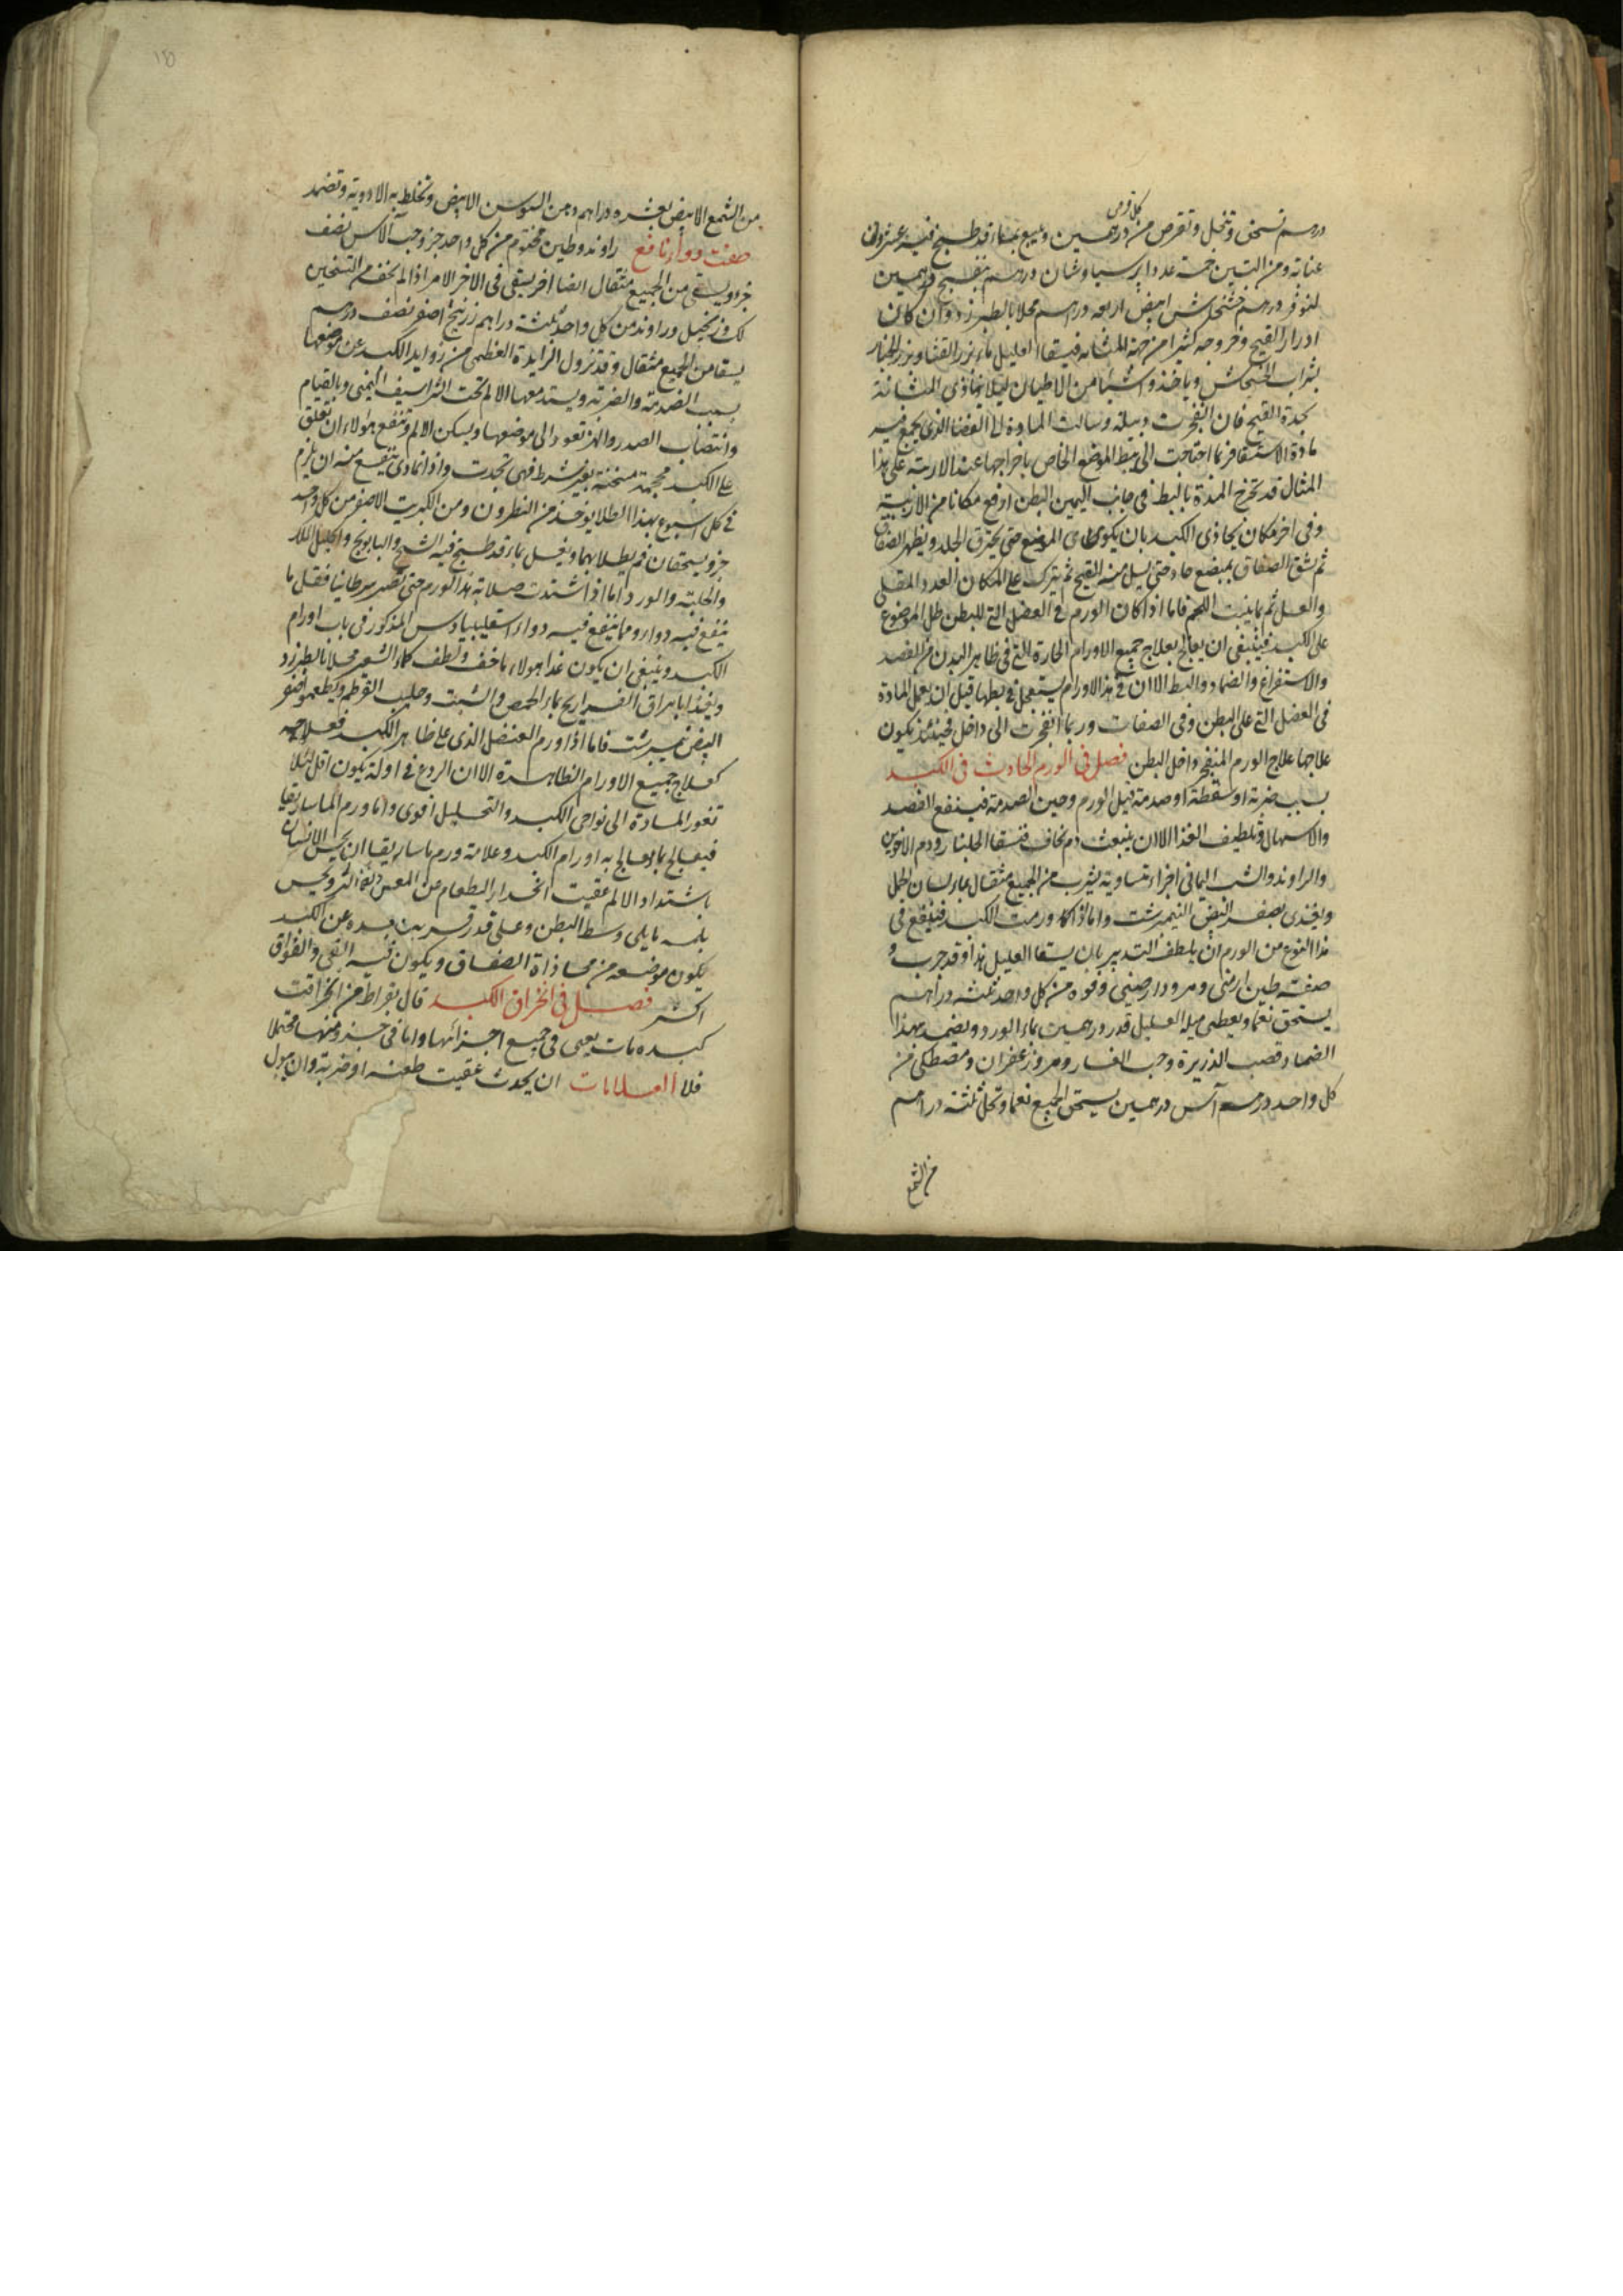 كل قرص
درهم تسحق وتنخل وتقرص من درهمين وبيع بماء قد طبخ فيه عشرون
عنابة ومن التين خمسة عددا برسياوشان درهم بنفسج درهمين
لنوفر درهم خشخاش ابيض اربعه درهم محلا بالطبرزد وان كان
ادرار القيح وخروجه كثيرا من جهة المثانه فيسقا العليل ماء بزر القثا وبزر الخيار
بشراب الخشخاش وياخذ شيئا من الاطيان ليلا تتاذى المثانة
بحدة القيح فان انفجرت دبيلة وسالت المادة الى الفضا الذى يجمع فيه
مادة الاستسقا فربما احتاجت الى بط الموضع الخاص باخراجها عند الاربية على هذا
المثال قد تخرج المدة بالبط فى جانب اليمين البطن ارفع مكانا من الاربية
وفى اخر مكان يحاذى الكبد بان يكوى الموضع حتى يحترق الجلد ويظهر الصفاق
ثم شق الصفاق بمبضع حاد حتى يسيل منه القيح ثم يترك على المكان العدد المقلى
والعسل ثم ما ينبت اللحم فاما اذا كان الورم فى العضل التى للبطن ظل الموضوع
على الكبد فينبغى ان يعالج بعلاج جميع الاورام الحارة التى فى ظاهر البدن من الفصد
والاستفراغ والضماد والبط الا ان فى هذا الاورام يستعجل فى بطها قبل ان يعمل المادة
فى العضل التى على البطن وفى الصفاق وربما انفجرت الى داخل فحينئذ يكون
علاجها علاج الورم المنفجر داخل البطن فصل فى الورم الحادث فى الكبد
بسبب ضربة او سقطة او صدمة قبل الورم وحين الصدمة فينفع الفصد
والاسهال وتلطيف الغذا الا ان ينبعث دم نخاف فيسقا الجلنار ودم الاخوين
والراوند والشب اليمانى اجزاء متساوية يشرب من الجميع مثقال بماء لسان الحمل
ويغذى بصفر البيض النيمبرشت واما اذا كا ورمت الكبد فينفع فى
هذا النوع من الورم ان يلطف التدبير بان يسقا العليل هذا وقد جرب
صفته طين ارمنى ومر ودارصينى وفوه من كل واحد ثلثه دراهم
يستحق نعما ويعطى منه العليل قدر درهمين بماء الورد ويضمد بهذا
الضماد قصب الذريرة وحب الغار ومر وزعفران ومصطكى من
كل واحد درهم آس درهمين يستحق الجميع نعما وتحل ثلثة دراهم
من الشمع
من الشمع الابيض بعشره دراهم دهن السوسن الابيض وتخلط به الادوية وتضمد
صفت دواء نافع راوند وطين مختوم من كل واحد جزء وحب الآس نصف
جزء ويسقى من الجميع مثقال ايضا اخر يسقى فى الاخر الامر اذا لم نخف من التسخين
لك وزنجبيل وراوند من كل واحد ثلثة دراهم زرنيخ اصفر نصف درهم
يسقا من الجميع مثقال وقد تزول الزايدة العظمى من زوايد الكبد عن موضعها
بسبب الصدمة والضربة ويستد معها الالم تحت الشراسيف اليمنى وبالقيام
وانتصاب الصدر والهز تعود الى موضعها ويسكن الالم وتنفع هولاء ان تعلق
على الكبد محجمة مسخنة بغير شرط فهى تجذبت واذا تمادى ينفع منه ان يلزم
فى كل اسبوع بهذا الطلا يوخذ من النطرون ومن الكبريت الاصفر من كل واحد
جزء ويسحقان ثم يطلا بهما ويغسل بماء قد طبخ فيه الشيح والبابونج واكليل الملك
والحلبة والورد اما اذا اشتدت صلابة هذا الورم حتى تصير سرطانيا فقل ما
ينفع فيه دواء ومما ينفع فيه دواء اسقليبيادوس المذكور فى باب اورام
الكبد وينبغى ان يكون غذا هولاء ما خف ولطف كماء الشعير محلا بالطبرزد
ويغذا بامراق الفراريج بماء الحمص والشبت وحليب القرطم ويطعموا صفر
البيض نيمبرشت فاما اذا ورم العضل الذى على ظاهر الكبد فعلاجه
كعلاج جميع الاورام الظاهرة الا ان الردع فى اوله يكون اقل لئلا
تغور المادة الى نواحى الكبد والتحليل اقوى واما ورم الماساريقا
فيعالج بما يعالج به اورام الكبد وعلامة ورم ماساريقا ان يحس الانسان
باشتداد الالم عقيب انحدار الطعام عن المعدة
بلمسه ما يلى وسط البطن وعلى قدر قرب بعده عن الكبد
يكون موضعه من محاذاة الصفاق ويكون فيه القى والفواق
اكثر فصل فى انخراق الكبد قال بقراط من انخراقت
كبده مات يعنى فى جميع اجزائها واما فى جزء ومنها محتملا
فلا العلامات ان يحدث عقيب طعنه او ضربة وان يبول